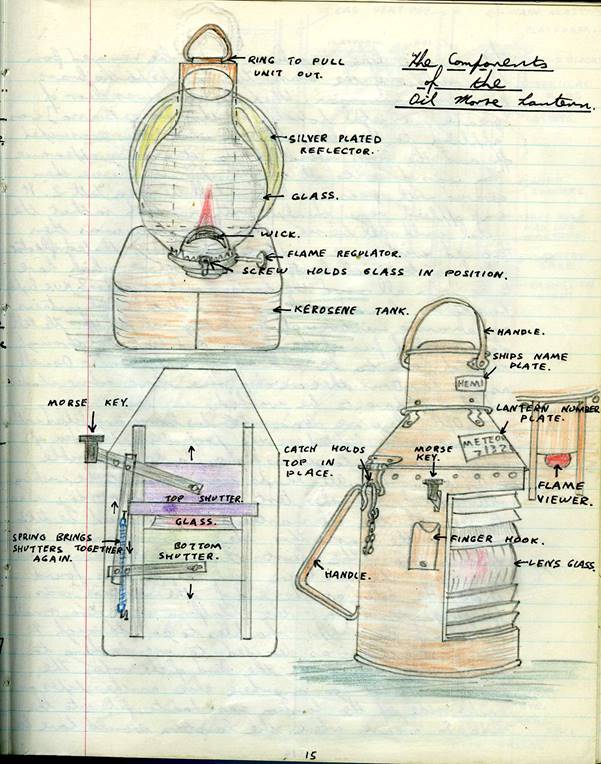 The Components
of the
Oil Morse Lantern.
RING TO PULL
UNIT OUT.
SILVER PLATED
REFLECTOR.
GLASS.
WICK.
FLAME REGULATOR.
SCREW HOLDS GLASS IN POSITION.
KEROSENE TANK.
HANDLE.
SHIPS NAME
PLATE.
HEMI
LANTERN NUMBER
PLATE.
METEOR
7132
FLAME
VIEWER.
MORSE KEY.
TOP SHUTTER.
GLASS.
BOTTOM
SHUTTER.
SPRING BRINGS
SHUTTERS TOGETHER
AGAIN.
CATCH HOLDS
TOP IN
PLACE.
MORSE
KEY.
FINGER HOOK.
LENS GLASS.
HANDLE.
15